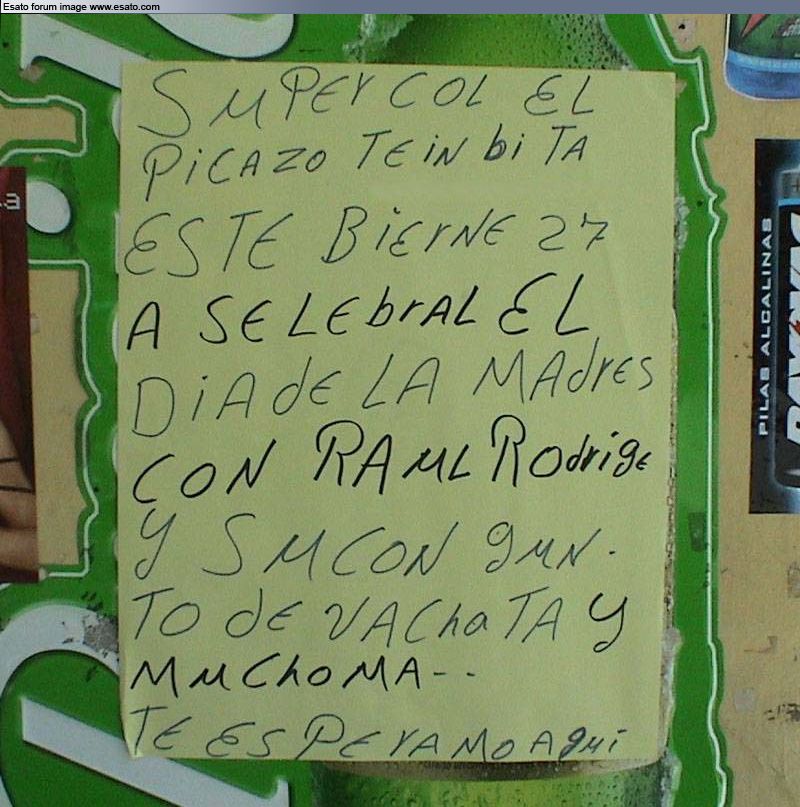 Esato forum image www.esato.com
SUPER COL EL
PICAZO TE iN bi TA
ESTE BiErNE 27
A SELEbrAL EL
DiA dE LA MAdrES
CON RAUL Rodrige
y SU CON gUN.
TO dE VAChaTA y
MUChoMA--
TE ESPERAMO AqUi
PILAS ALCALINAS